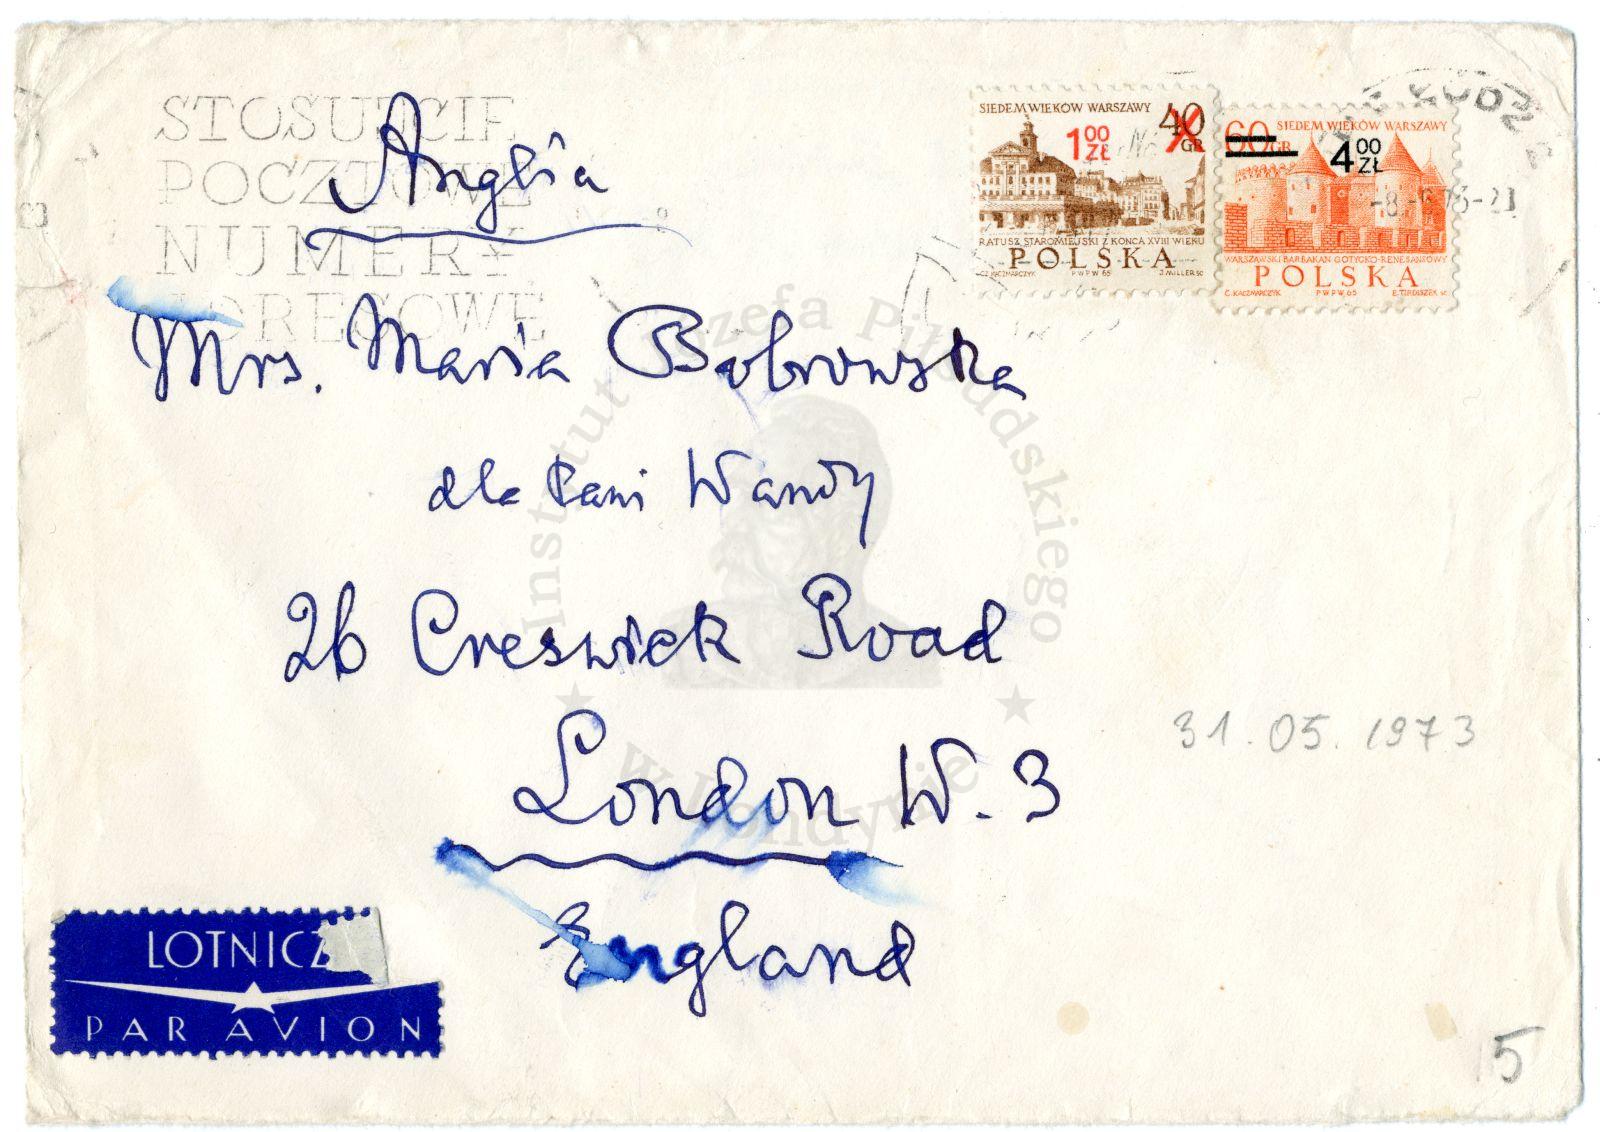 STOSUJCIE
POCZTOWE
NUMERY
ADRESOWE
SIEDEM WIEKÓW WARSZAWY 40 GR
1 00 ZŁ
RATUSZ STAROMIEJSKI Z KOŃCA XVIII WIEKU
POLSKA
C. KACZMARCZYK PWPW 65 J. MILLER SC
60 GR SIEDEM WIEKÓW WARSZAWY
4 00 ZŁ
WARSZAWSKI BARBAKAN GOTYCKO-RENESANSOWY
POLSKA
C. KACZMARCZYK PWPW 65 E. TIRDISZEK SC
ŁÓDŹ 2
Anglia
Mrs. Maria Bobrowska
dla Pani Wandy
26 Creswick Road
London W. 3
England
31.05.1973
LOTNICZ
PAR AVION
5
Instytut Józefa Piłsudskiego
w Londynie